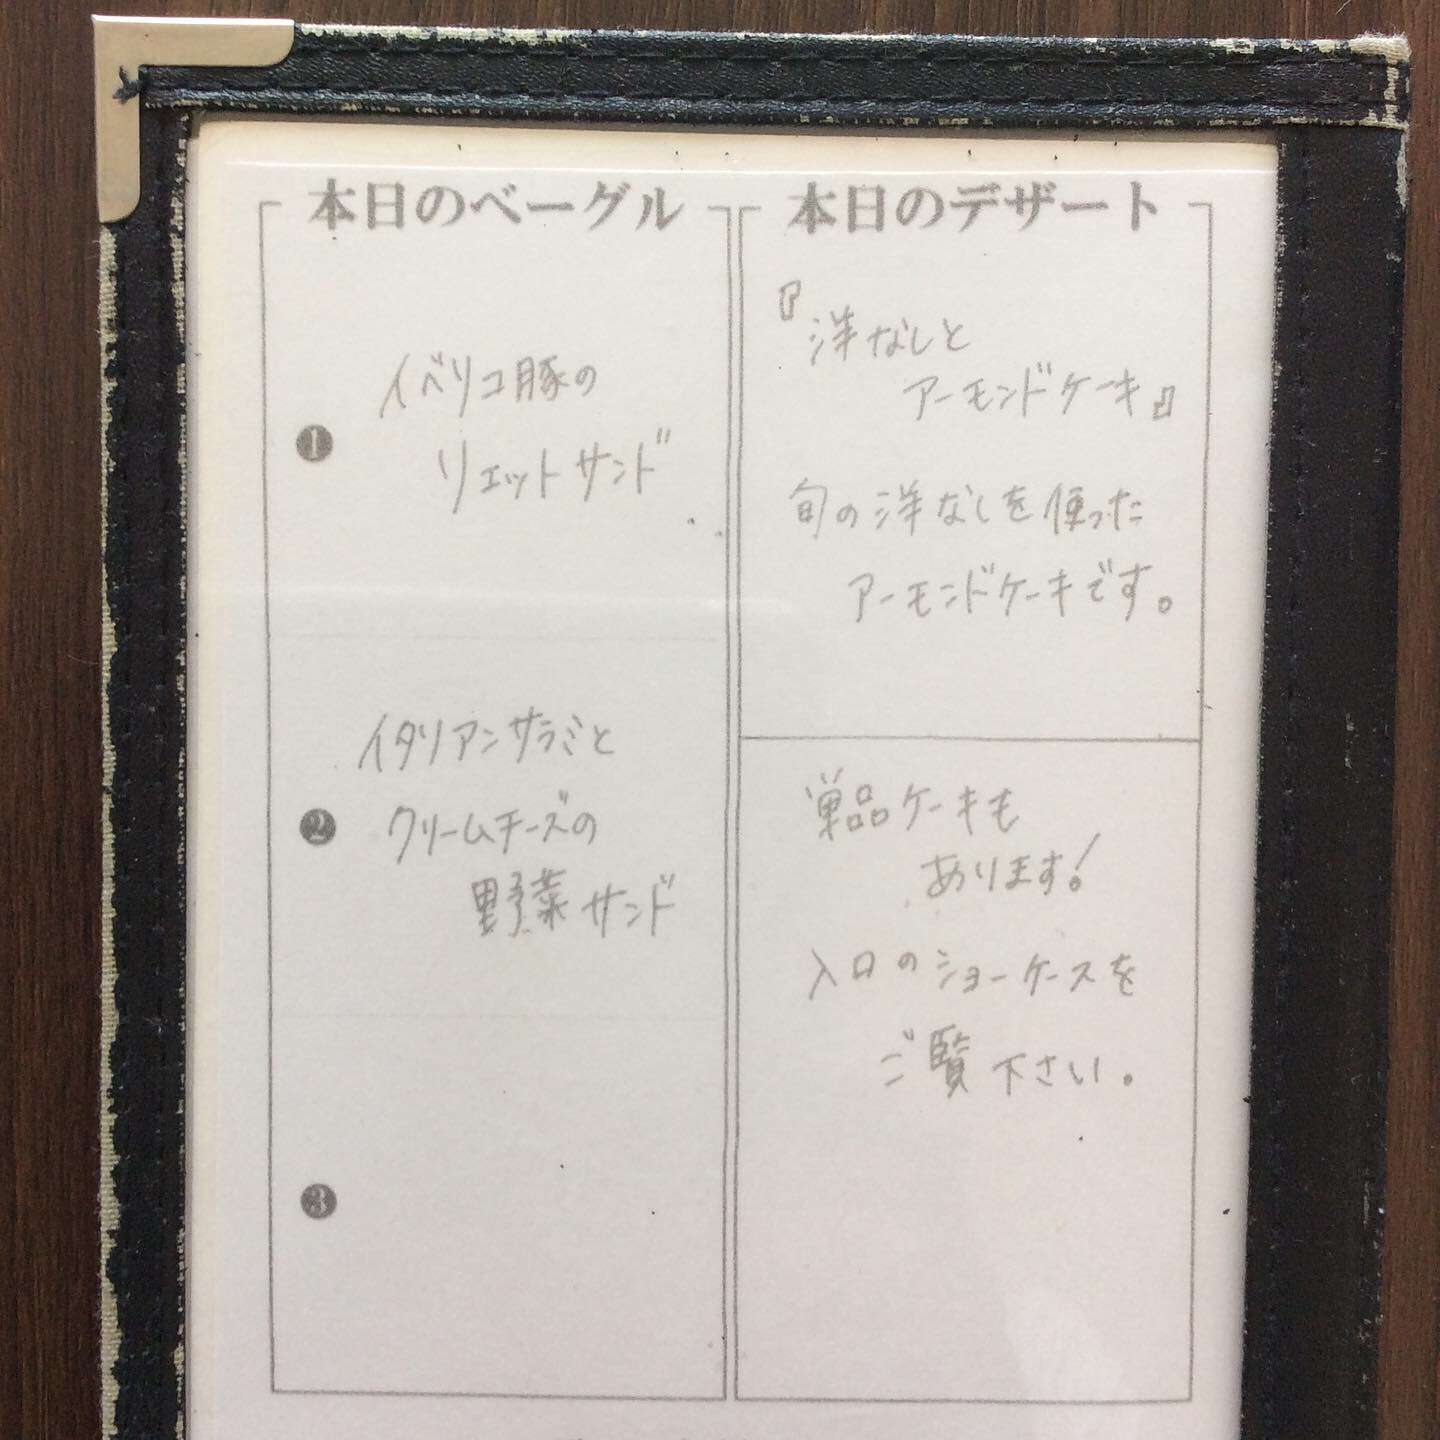 本日のベーグル
❶
イベリコ豚の
リエットサンド
❷
イタリアンサラミと
クリームチーズの
野菜サンド
❸
本日のデザート
『洋なしと
アーモンドケーキ』
旬の洋なしを使った
アーモンドケーキです。
単品ケーキも
あります!
入口のショーケースを
ご覧下さい。